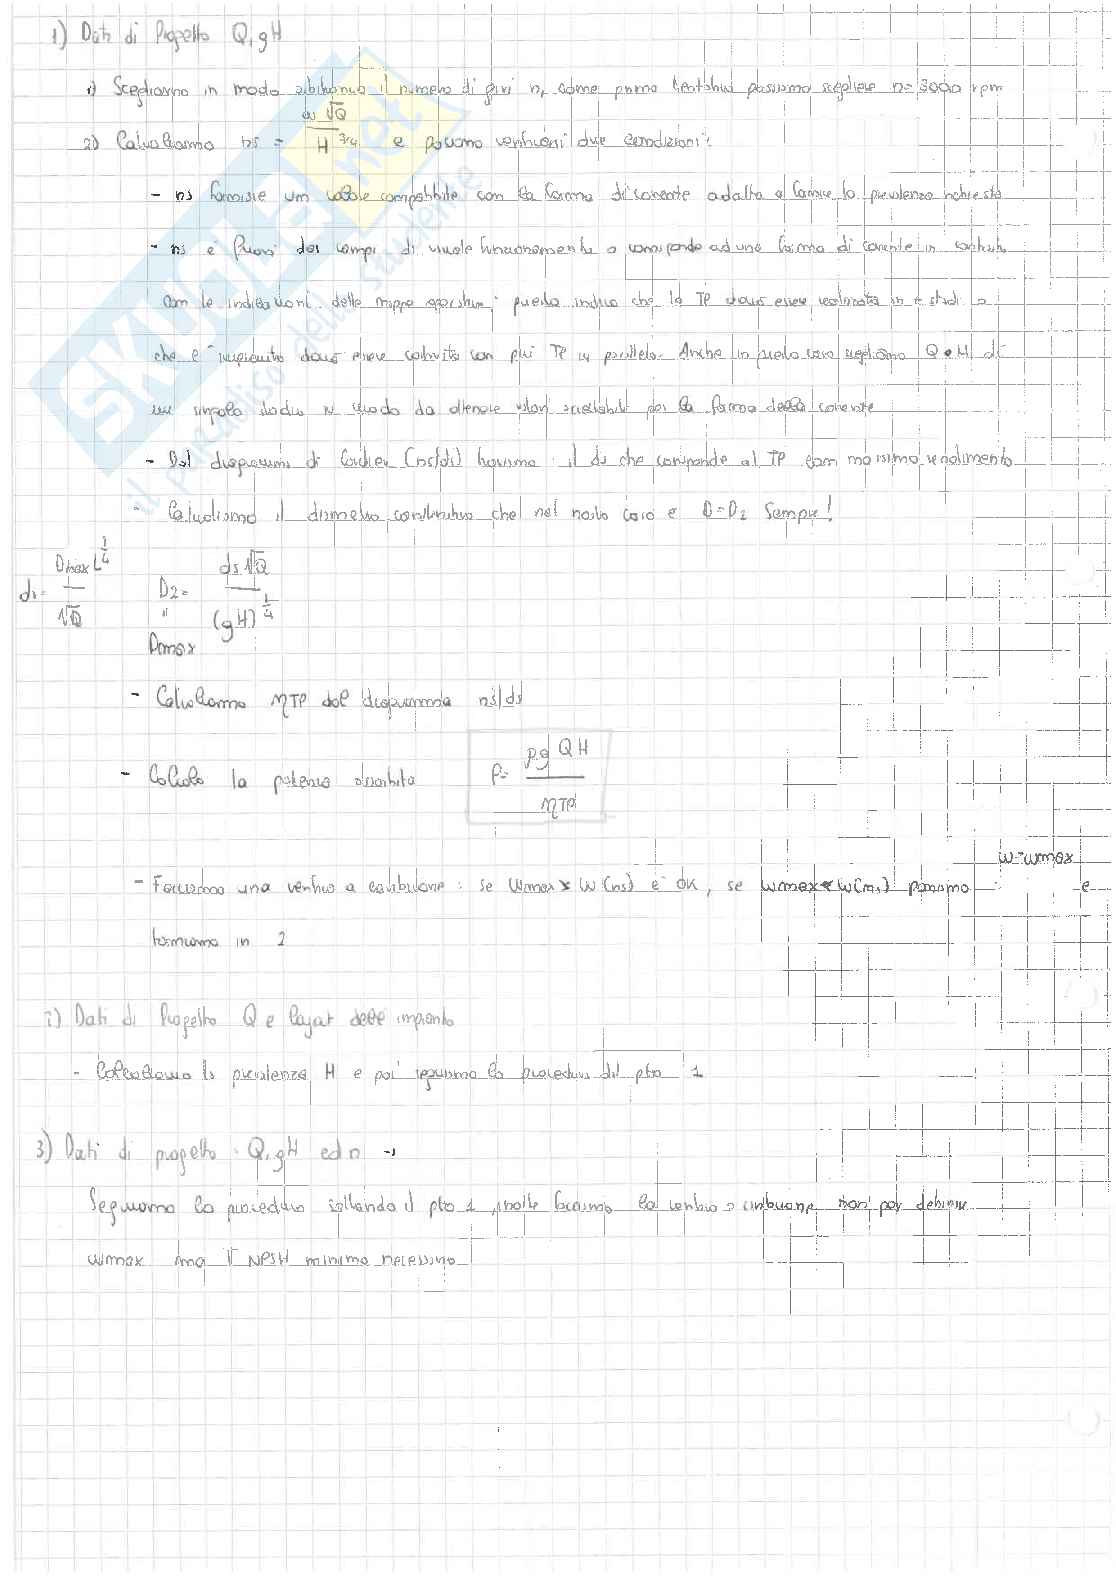 1) Dati di Progetto Q, gH
1) Scegliamo in modo arbitrario il numero di giri n, come primo tentativo possiamo scegliere n= 3000 rpm
2) Calcoliamo ns = ω √Q / H^3/4 e possono verificarsi due condizioni:
- ns fornisce un valore compatibile con la forma di corrente adatta a fornire la prevalenza richiesta
- ns è fuori dai campi di usuale funzionamento o corrisponde ad una forma di corrente in contrasto
con le indicazioni delle mappe operative; questo indica che la TP dovrà essere realizzata in + stadi o
che l'impianto dovrà essere costruito con più TP in parallelo. Anche in questo caso scegliamo Q e H di
un singolo stadio in modo da ottenere valori accettabili per la forma della corrente
- Dal diagramma di Cordier (ns/ds) troviamo il ds che corrisponde al TP con massimo rendimento
- Calcoliamo il diametro caratteristico che nel nostro caso è D=D2 Sempre!
ds = Dmax L^1/4 / √Q D2 = ds √Q / (gH)^1/4
" Dmax
- Calcoliamo ηTP dal diagramma ns/ds
- Calcolo la potenza assorbita P = ρg QH / ηTP
- Facciamo una verifica a cavitazione : se ωmax > ω(ns) è OK, se ωmax < ω(ns) poniamo ω=ωmax e
torniamo in 2
2) Dati di Progetto Q e layout dell' impianto
- Calcoliamo la prevalenza H e poi seguiamo la procedura del pto 1
3) Dati di progetto : Q, gH ed n →
Seguiamo la procedura saltando il pto 1, inoltre facciamo la verifica a cavitazione non per definire
ωmax ma il NPSH minimo necessario
SKUOLA.net
il paradiso dello studente